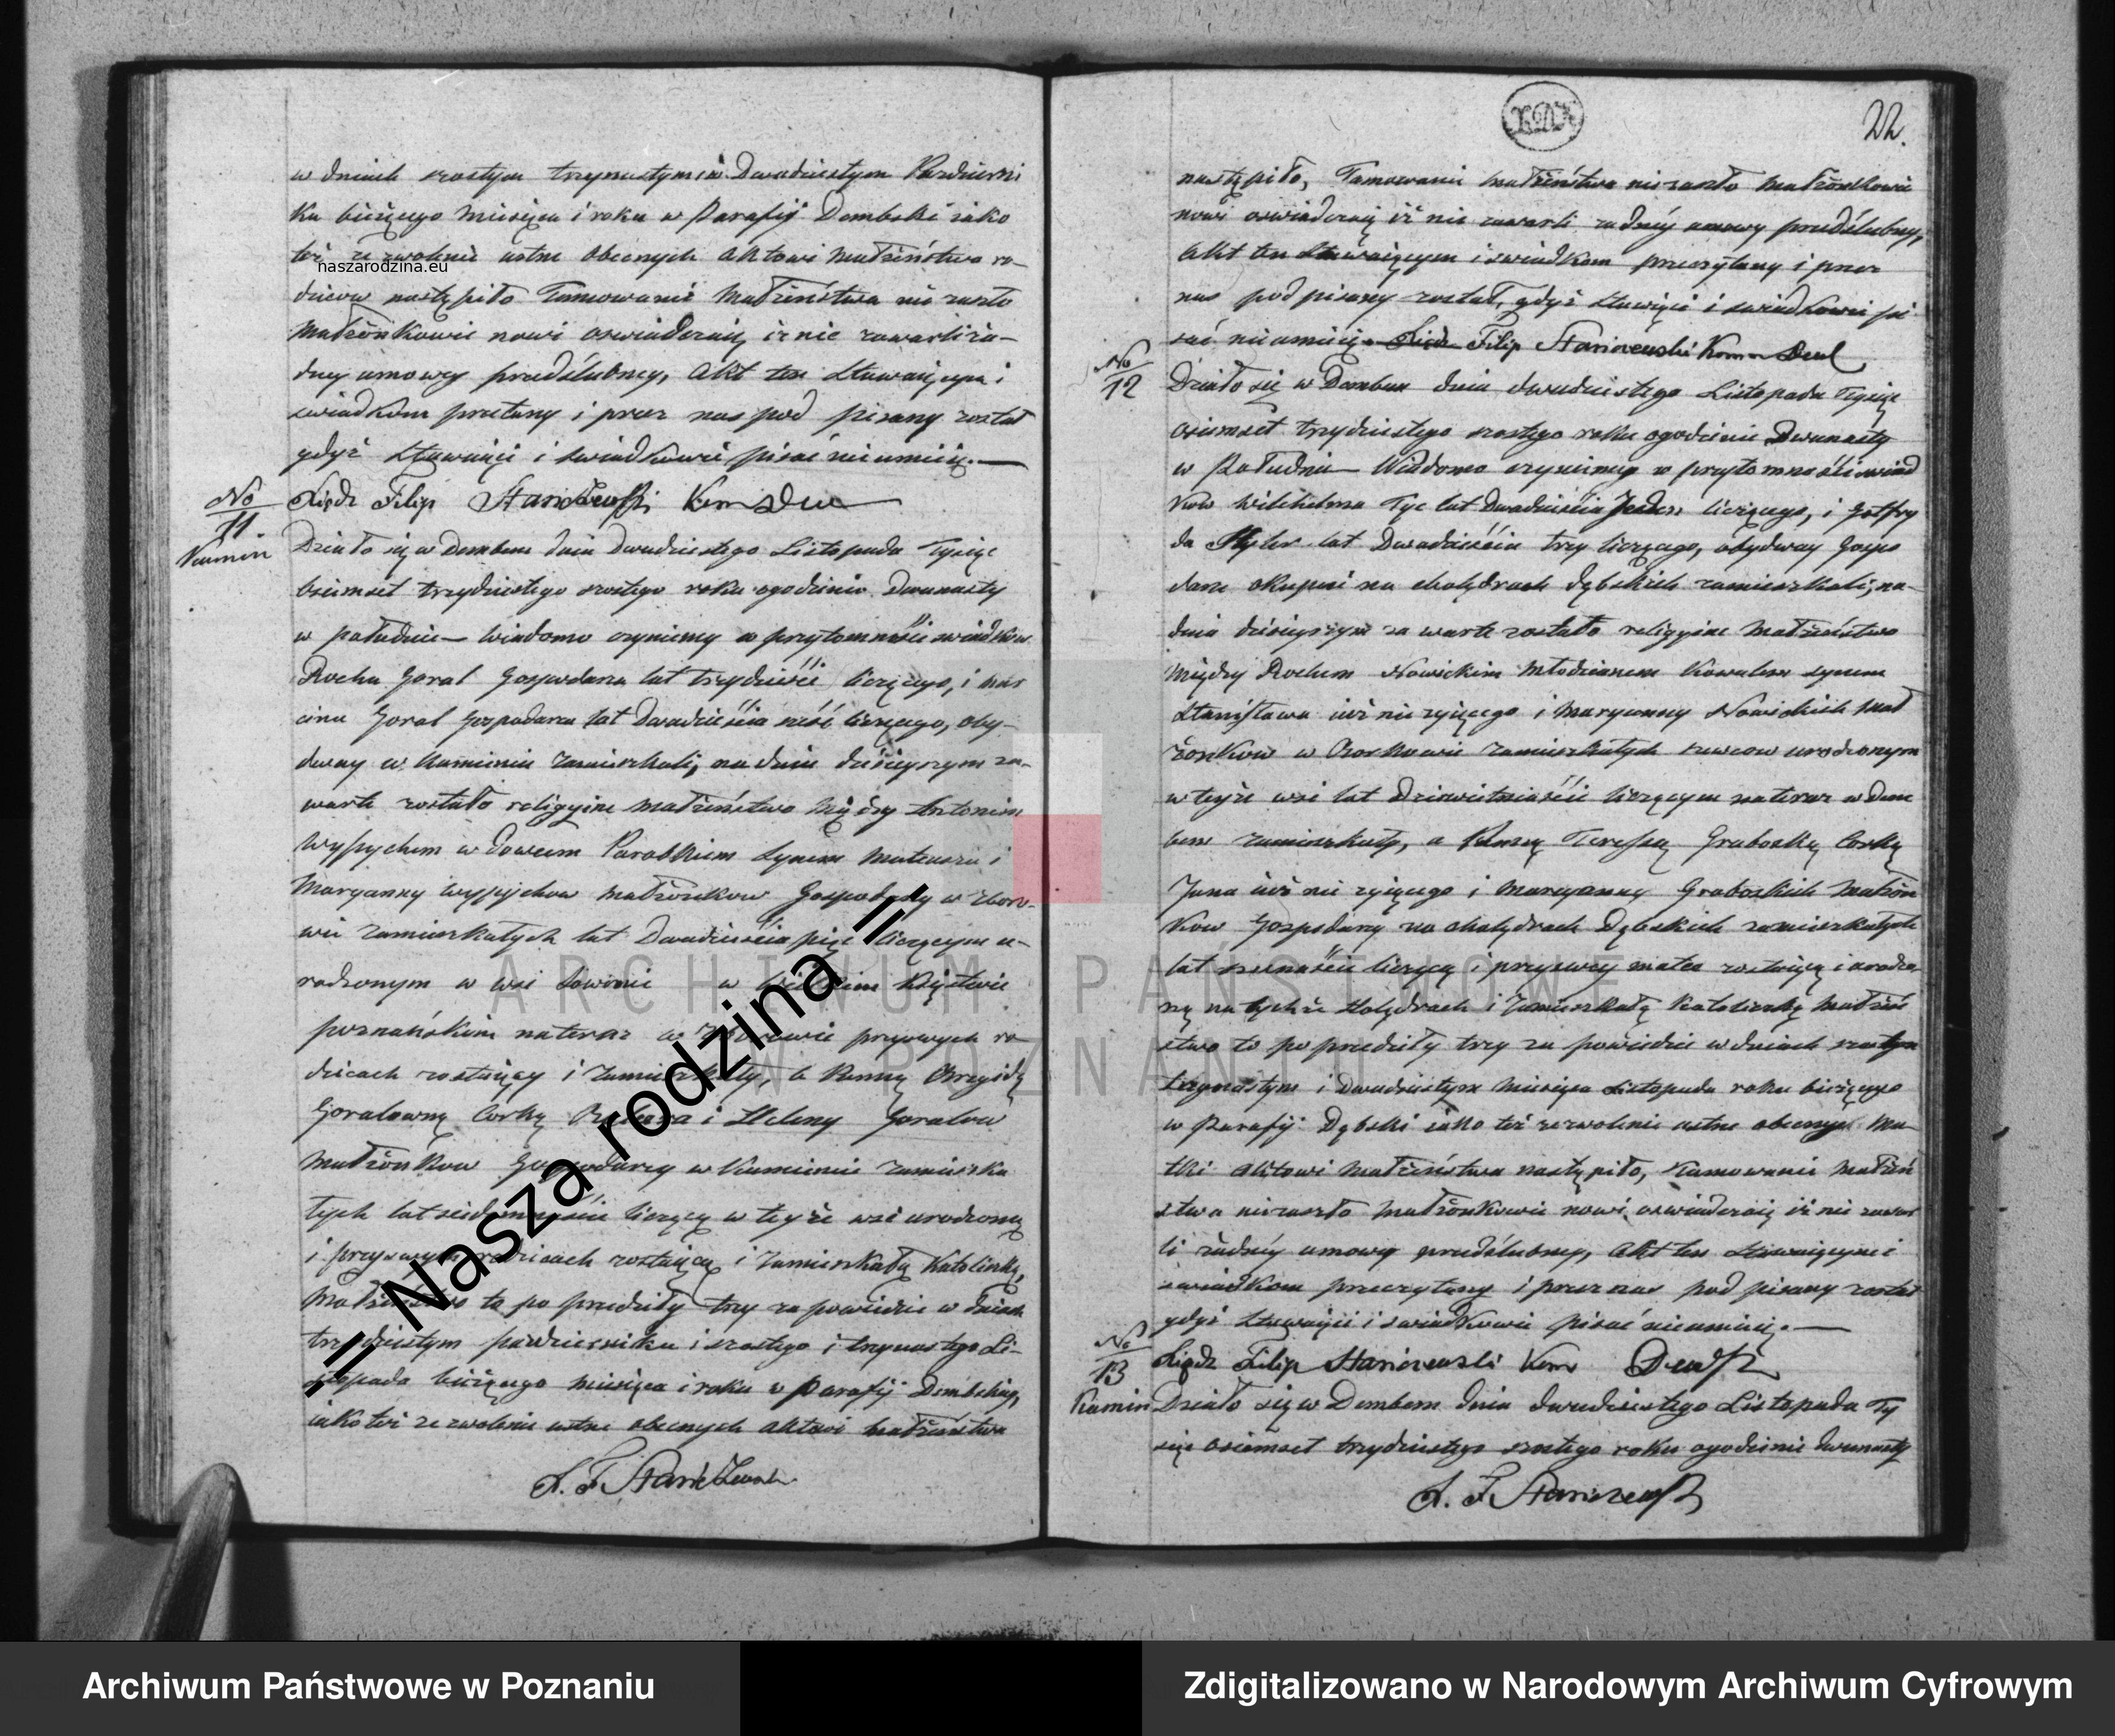 w dniach szostym trzynastym i Dwudziestym Pazdzierni
ka bieżącego Miesiąca i roku w Parafij Dembski jako
też ze zwolenie ustne obecnych Aktowi Małżeństwa ro-
naszarodzina.eu
dzicow nastąpiło Tamowanie Małżeństwa nie zaszło
Małżonkowie nowi oswiadczaią, iż nie zawarli ża-
dney umowy przedślubney, Akt ten Stawaiącym i
swiadkom przeczytany i przez nas pod pisany został
gdyż Stawaiący i swiadkowie pisać nie umieią.
Xiądz Filip Staniszewski Kom
No
11
Kamin
Działo się w Dembem dnia Dwudziestego Listopada Tysiąc
Osiemset trzydziestego szostego roku o godzinie Dwunasty
w południe wiadomo czyniemy w przytomności swiadkow
Rocha Goral Gospodarza lat trzydzieści liczącego, i Mar
cina Goral Gospodarza lat Dwadzieścia sześć liczącego, oby-
dway w Kamieniu zamieszkali, na dniu dzisieyszym za-
warte zostało religyine Małżeństwo Między Antonim
Wypychem wdowcem Parobkiem Synem Mateusza i
Maryanny Wypychow Małżonkow Gospodarzy w Zboro-
wie zamieszkałych lat Dwadzieścia pięć liczącym u-
rodzonym w wsi w Wielkim Xięstwie
poznańskim na teraz w Zborowie przy swych ro-
dzicach zostaiący i zamieszkały, a Panną Brygidą
Goralowną Corką i Heleny Goralow
Małżonkow Gospodarzy w Kamieniu zamieszka
łych lat siedmnaście liczącą w teyże wsi urodzoną
i przy swych rodzicach zostaiącą i zamieszkałą Katoliczką,
Małżeństwo to po przedziły trzy zapowiedzie w dniach
trzydziestym pazdziernika i szostego i trzynastego Li-
stopada bieżącego miesiąca i roku w Parafij Dembskiey,
iako też ze zwolenie ustne obecnych Aktowi Małżeństwa
X. F. Staniszewski
22.
nastąpiło, Tamowanie Małżeństwa nie zaszło Małżonkowie
nowi oswiadczaią iż nie zawarli żadnéy umowy przedślubney,
Akt ten Stawaiącym i swiadkom przeczytany i przez
nas pod pisany został, gdyż Stawaiący i swiadkowie pi
sać nie umieią. Xiądz Filip Staniszewski Kom
No
12
Działo się w Dembem dnia dwudziestego Listopada Tysiąc
Osiemset trzydziestego szostego roku o godzinie Dwunasty
w Południe Wiadomo czyniemy w przytomności swiad
kow Wilchelma Tyc lat Dwadzieścia Jeden liczącego, i Gotfry
da lat Dwadzieścia trzy liczącego, obydway Gospo
darze okupni na cholędrach Dębskich zamieszkali, na
dniu dzisieyszym zawarte zostało religyine Małżeństwo
Między Rochem Nowickim Młodzianem Kowalem synem
Stanisława iuż nie żyiącego i Maryanny Nowickich Mał
żonkow w zamieszkałych szewcow urodzonym
w teyże wsi lat Dziewietnaście liczącym na teraz w Dem
bem zamieszkały, a Panną Teressą Graboską Corką
Jana iuż nie żyiącego i Maryanny Graboskich Małżon
kow Gospodarzy na cholędrach Dębskich zamieszkałych
lat liczącą i przy swey matce zostaiącą i urodzo
ną na tychże Holędrach i zamieszkałą Katoliczką Małżeń
stwo to po przedziły trzy za powiedzie w dniach szostym
trzynastym i Dwudziestym Miesiąca Listopada roku bieżącego
w Parafij Dębski iako też ze zwolenie ustne obecnyi Ma
tki Aktowi Małżeństwa nastąpiło, Tamowanie Małżeń
stwa nie zaszło Małżonkowie nowi oswiadczaią iż nie zawar
li żadnéy umowy przedślubney, Akt ten Stawaiącym i
swiadkom przeczytany i przez nas pod pisany został
gdyż Stawaiący i swiadkowie pisać nie umieią.
Xiądz Filip Staniszewski Kom
No
13
Kamin
Działo się w Dembem dnia dwudziestego Listopada Ty
siąc Osiemset trzydziestego szostego roku o godzinie dwunasty
X. F. Staniszewski
ARCHIWUM PAŃSTWOWE
W POZNANIU
= Nasza rodzina =
Archiwum Państwowe w Poznaniu
Zdigitalizowano w Narodowym Archiwum Cyfrowym